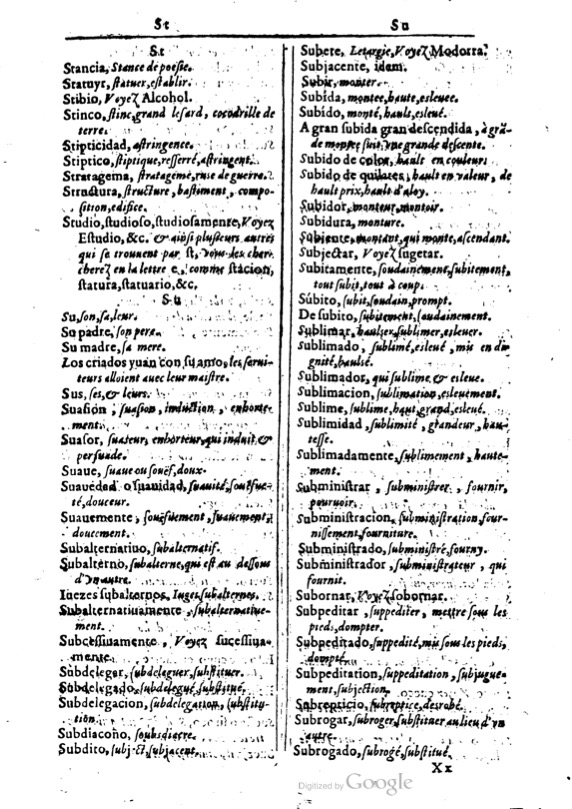 St
Su
St
Stancia, Stance de poësie.
Statuyr, statuer, establir.
Stibio, Voyez Alcohol.
Stinco, stinc, grand lesard, cocodrille de
terre.
Stipticidad, astringence.
Stiptico, stiptique, resserré, astringent.
Stratagema, stratagemé, ruse de guerre.
Structura, structure, bastiment, compo-
sition, edifice.
Studio, studioso, studiosamente, Voyez
Estudio, &c. & ainsi plusieurs autres
qui se trouuent par st, vous les cher-
cherez en la lettre e, comme stacion,
statura, statuario, &c,
Su
Su, son, sa, leur.
Su padre, son pere.
Su madre, sa mere.
Los criados yuan con su amo, les serui-
teurs alloient auec leur maistre.
Sus, ses, & leurs.
Suasion, suasion, induction, enhorte-
ment.
Suasor, suaseur, enhorteur, qui induit &
persuade.
Suaue, suaue ou souëf, doux.
Suauedad o suauidad, suauité, souëfue-
té, douceur.
Suauemente, souëfuement, suauement,
doucement.
Subalternatiuo, subalternatif.
Subalterno, subalterne, qui est au dessous
d'vn autre.
Iuezes subalternos, Iuges subalternes.
Subalternatiuamente, subalternatiue-
ment.
Subcessiuamente, Voyez sucessiua-
mente.
Subdelegar, subdeleguer, substituer.
Subdelegado, subdelegué, substitué.
Subdelegacion, subdelegation, substitu-
tion.
Subdiacono, soubsdiacre.
Subdito, subject, subjacent.
Subete, Letargie, Voyez Modorra.
Subjacente, idem.
Subir, monter.
Subida, montee, haute, esleuee.
Subido, monté, hault, esleué.
A gran subida gran descendida, à grã-
de montee suit vne grande descente.
Subido de color, hault en couleur.
Subido de quilates, hault en valeur, de
hault prix, hault d'aloy.
Subidor, monteur, montoir.
Subidura, monture.
Subiente, montant, qui monte, ascendant.
Subjectar, Voyez sugetar.
Subitamente, soudainement, subitement,
tout subit, tout à coup.
Súbito, subit, soudain, prompt.
De subito, subitement, soudainement.
Sublimar, haulser, sublimer, esleuer.
Sublimado, sublimé, esleué, mis en di-
gnité, haulsé.
Sublimador, qui sublime & esleue.
Sublimacion, sublimation, esleuement.
Sublime, sublime, haut, grand, esleué.
Sublimidad, sublimité, grandeur, hau-
tesse.
Sublimadamente, sublimement, haute-
ment.
Subministrar, subministrer, fournir,
pouruoir.
Subministracion, subministration, four-
nissement, fourniture.
Subministrado, subministré, fourny.
Subministrador, subministrateur, qui
fournit.
Subornar, Voyez sobornar.
Subpeditar, suppediter, mettre sous les
pieds, dompter.
Subpeditado, suppedité, mis sous les pieds,
dompté.
Subpeditation, suppeditation, subjugue-
ment, subjection.
Subrepticio, subreptice, desrobé.
Subrogar, subroger, substituer au lieu d'vn
autre.
Subrogado, subrogé, substitué.
Xx
Digitized by Google